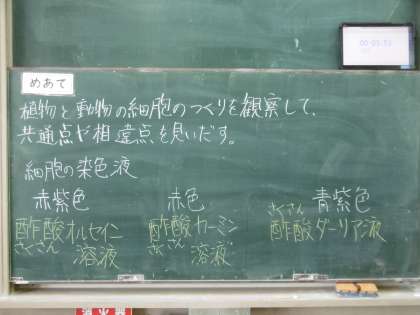 めあて
植物と動物の細胞のつくりを観察して、
共通点や相違点を見いだす。
細胞の染色液
赤紫色
赤色
青紫色
酢酸オルセイン
さくさん
溶液
酢酸カーミン
さくさん
溶液
さくさん
酢酸ダーリア液